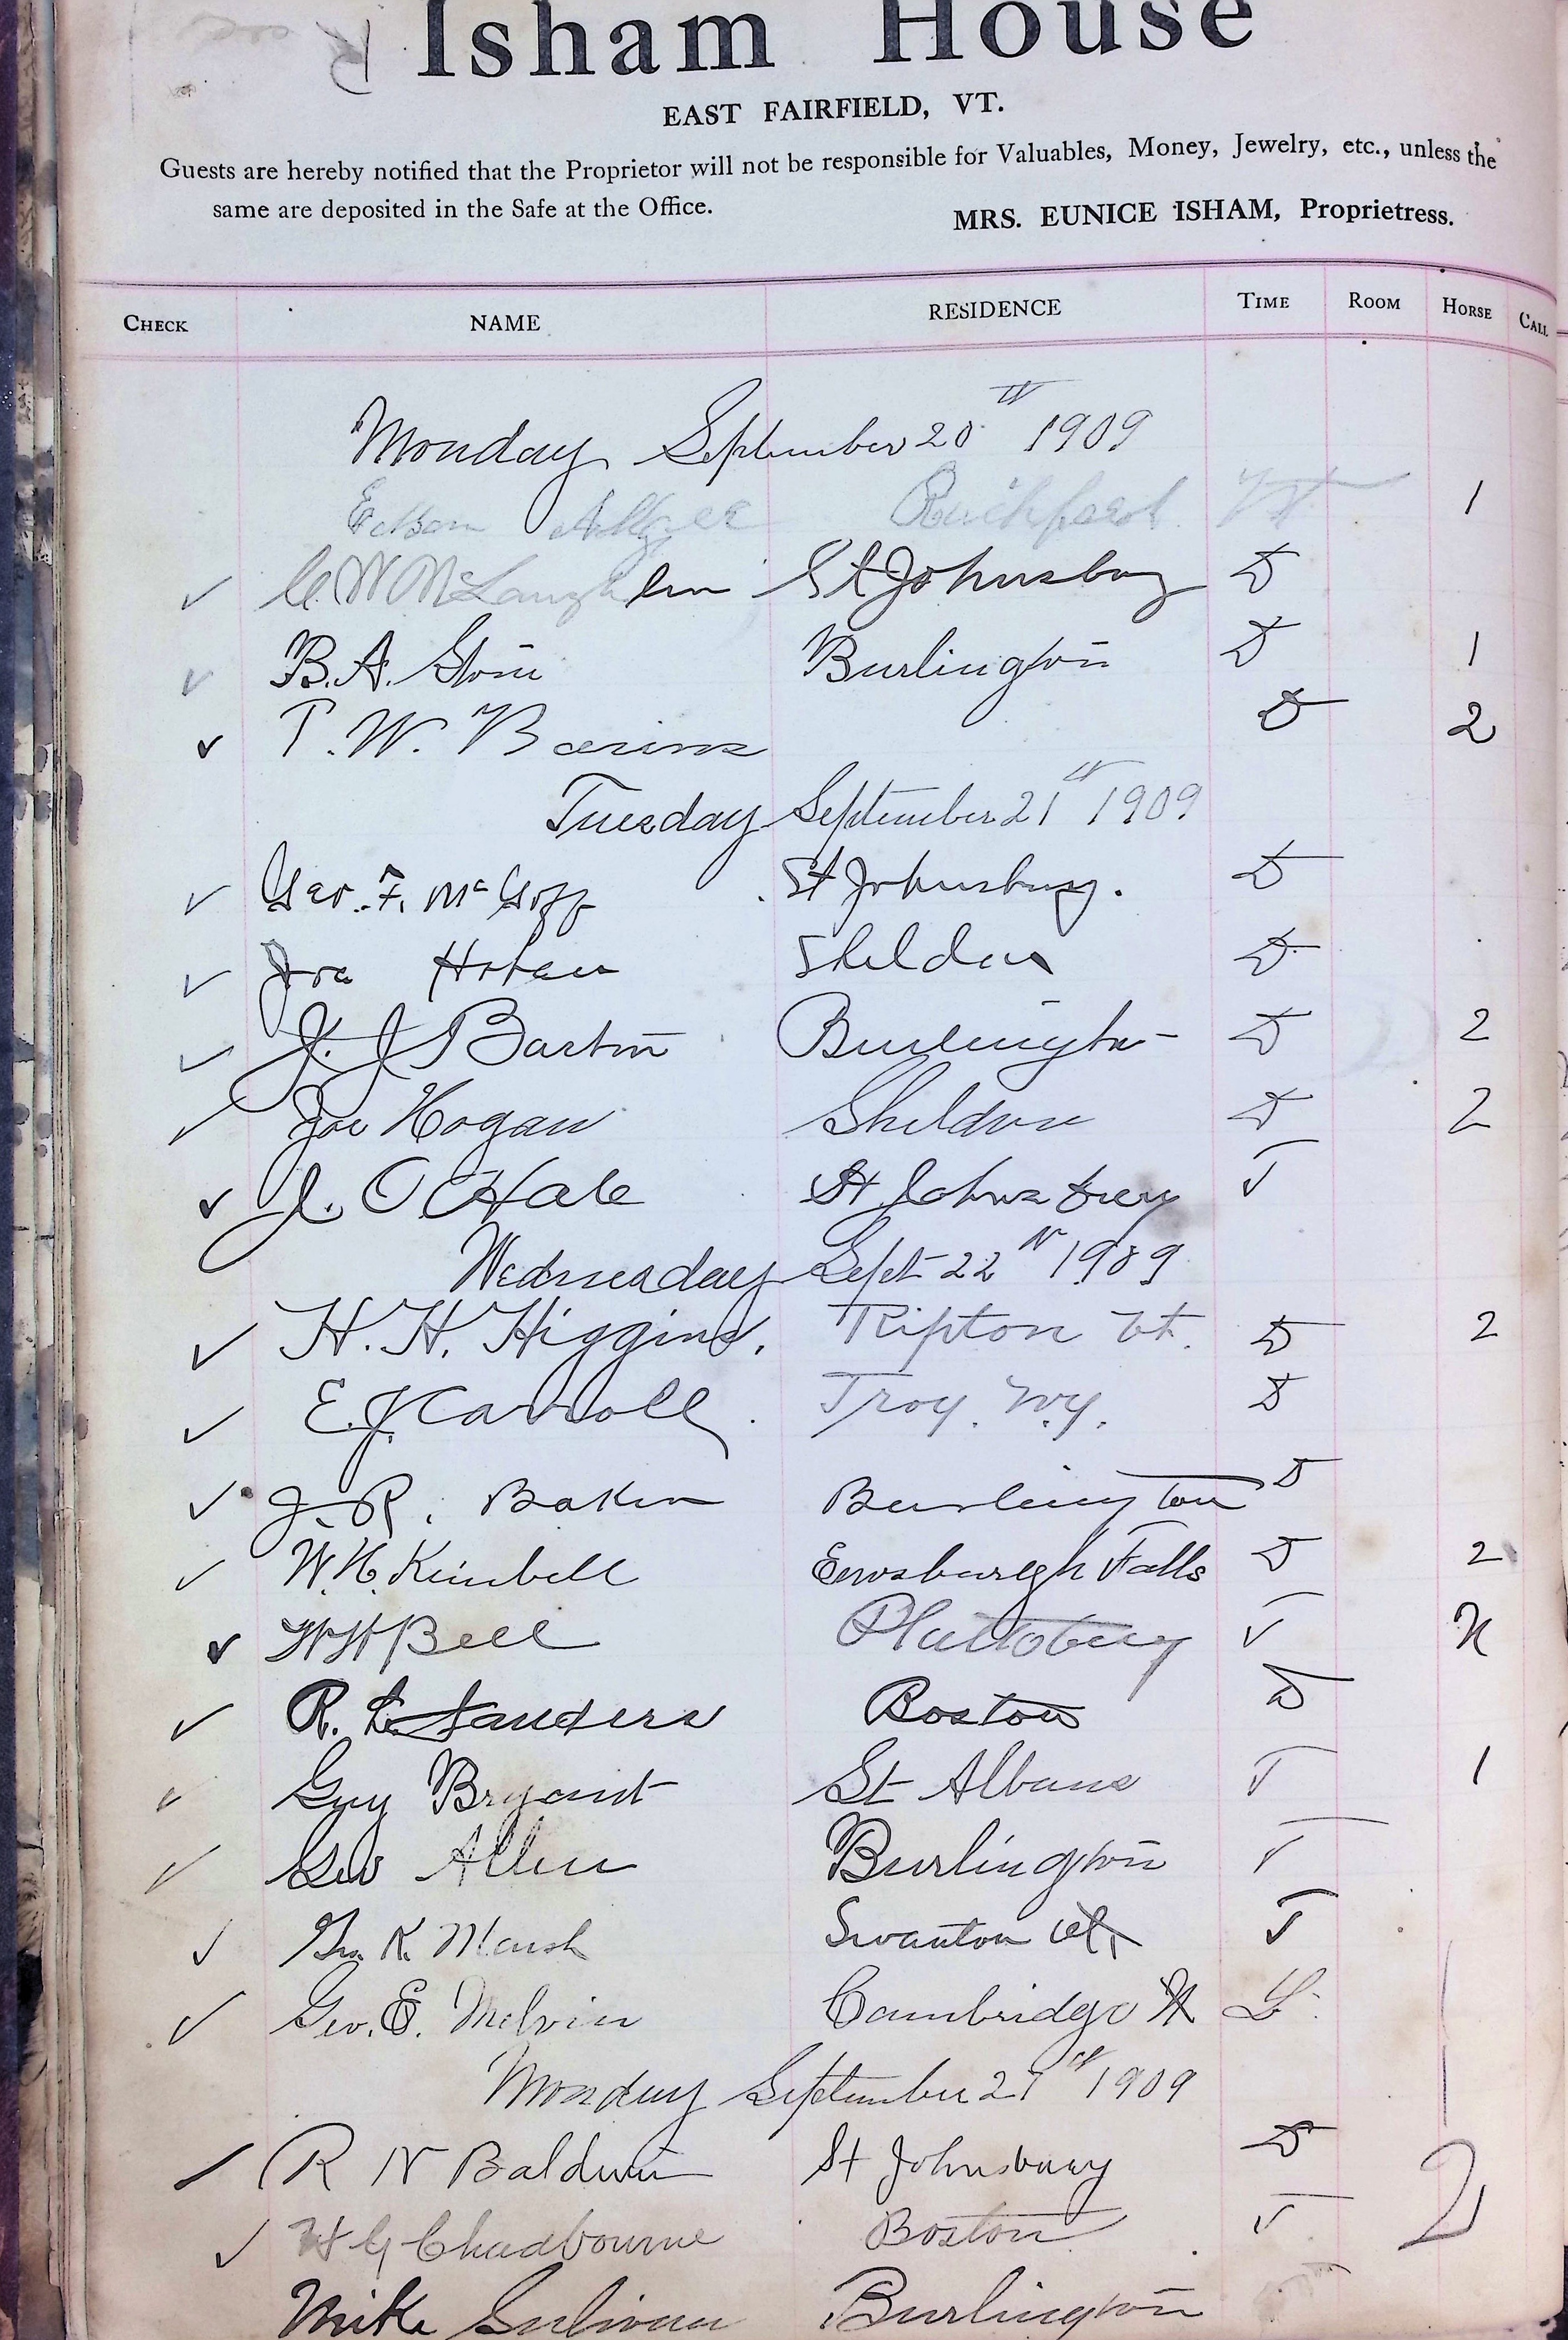 Isham House
EAST FAIRFIELD, VT.
Guests are hereby notified that the Proprietor will not be responsible for Valuables, Money, Jewelry, etc., unless the
same are deposited in the Safe at the Office.
MRS. EUNICE ISHAM, Proprietress.
CHECK NAME RESIDENCE TIME ROOM HORSE CALL
Monday September 20th 1909
Richford Vt 1
C. W McLaughlin St Johnsbury D
B. A. Burlington D 1
P. W. D 2
Tuesday September 21st 1909
Geo. F. McGoff St Johnsbury. D
Joe Sheldon D
J. J Barton Burlington D 2
Joe Hogan Sheldon D 2
J. O Hale St Johnsbury T
Wednesday Sept 22nd 1909
H. H. Higgins. Ripton Vt. D 2
E. J. Carroll. Troy. N.Y. D
J. R. Baker Burlington D
W. H. Kimball Enosburgh Falls D 2
W H Bell Plattsburg T
R. E. Sanders Boston D
Guy Bryant St Albans T 1
Geo Allen Burlington T
Geo. K. Marsh Swanton Vt. T
Geo. E. Melvin Cambridge Vt L
Monday September 1909
R N Baldwin St Johnsbury D
H G Chadbourne Boston T 2
Mike Sulivan Burlington